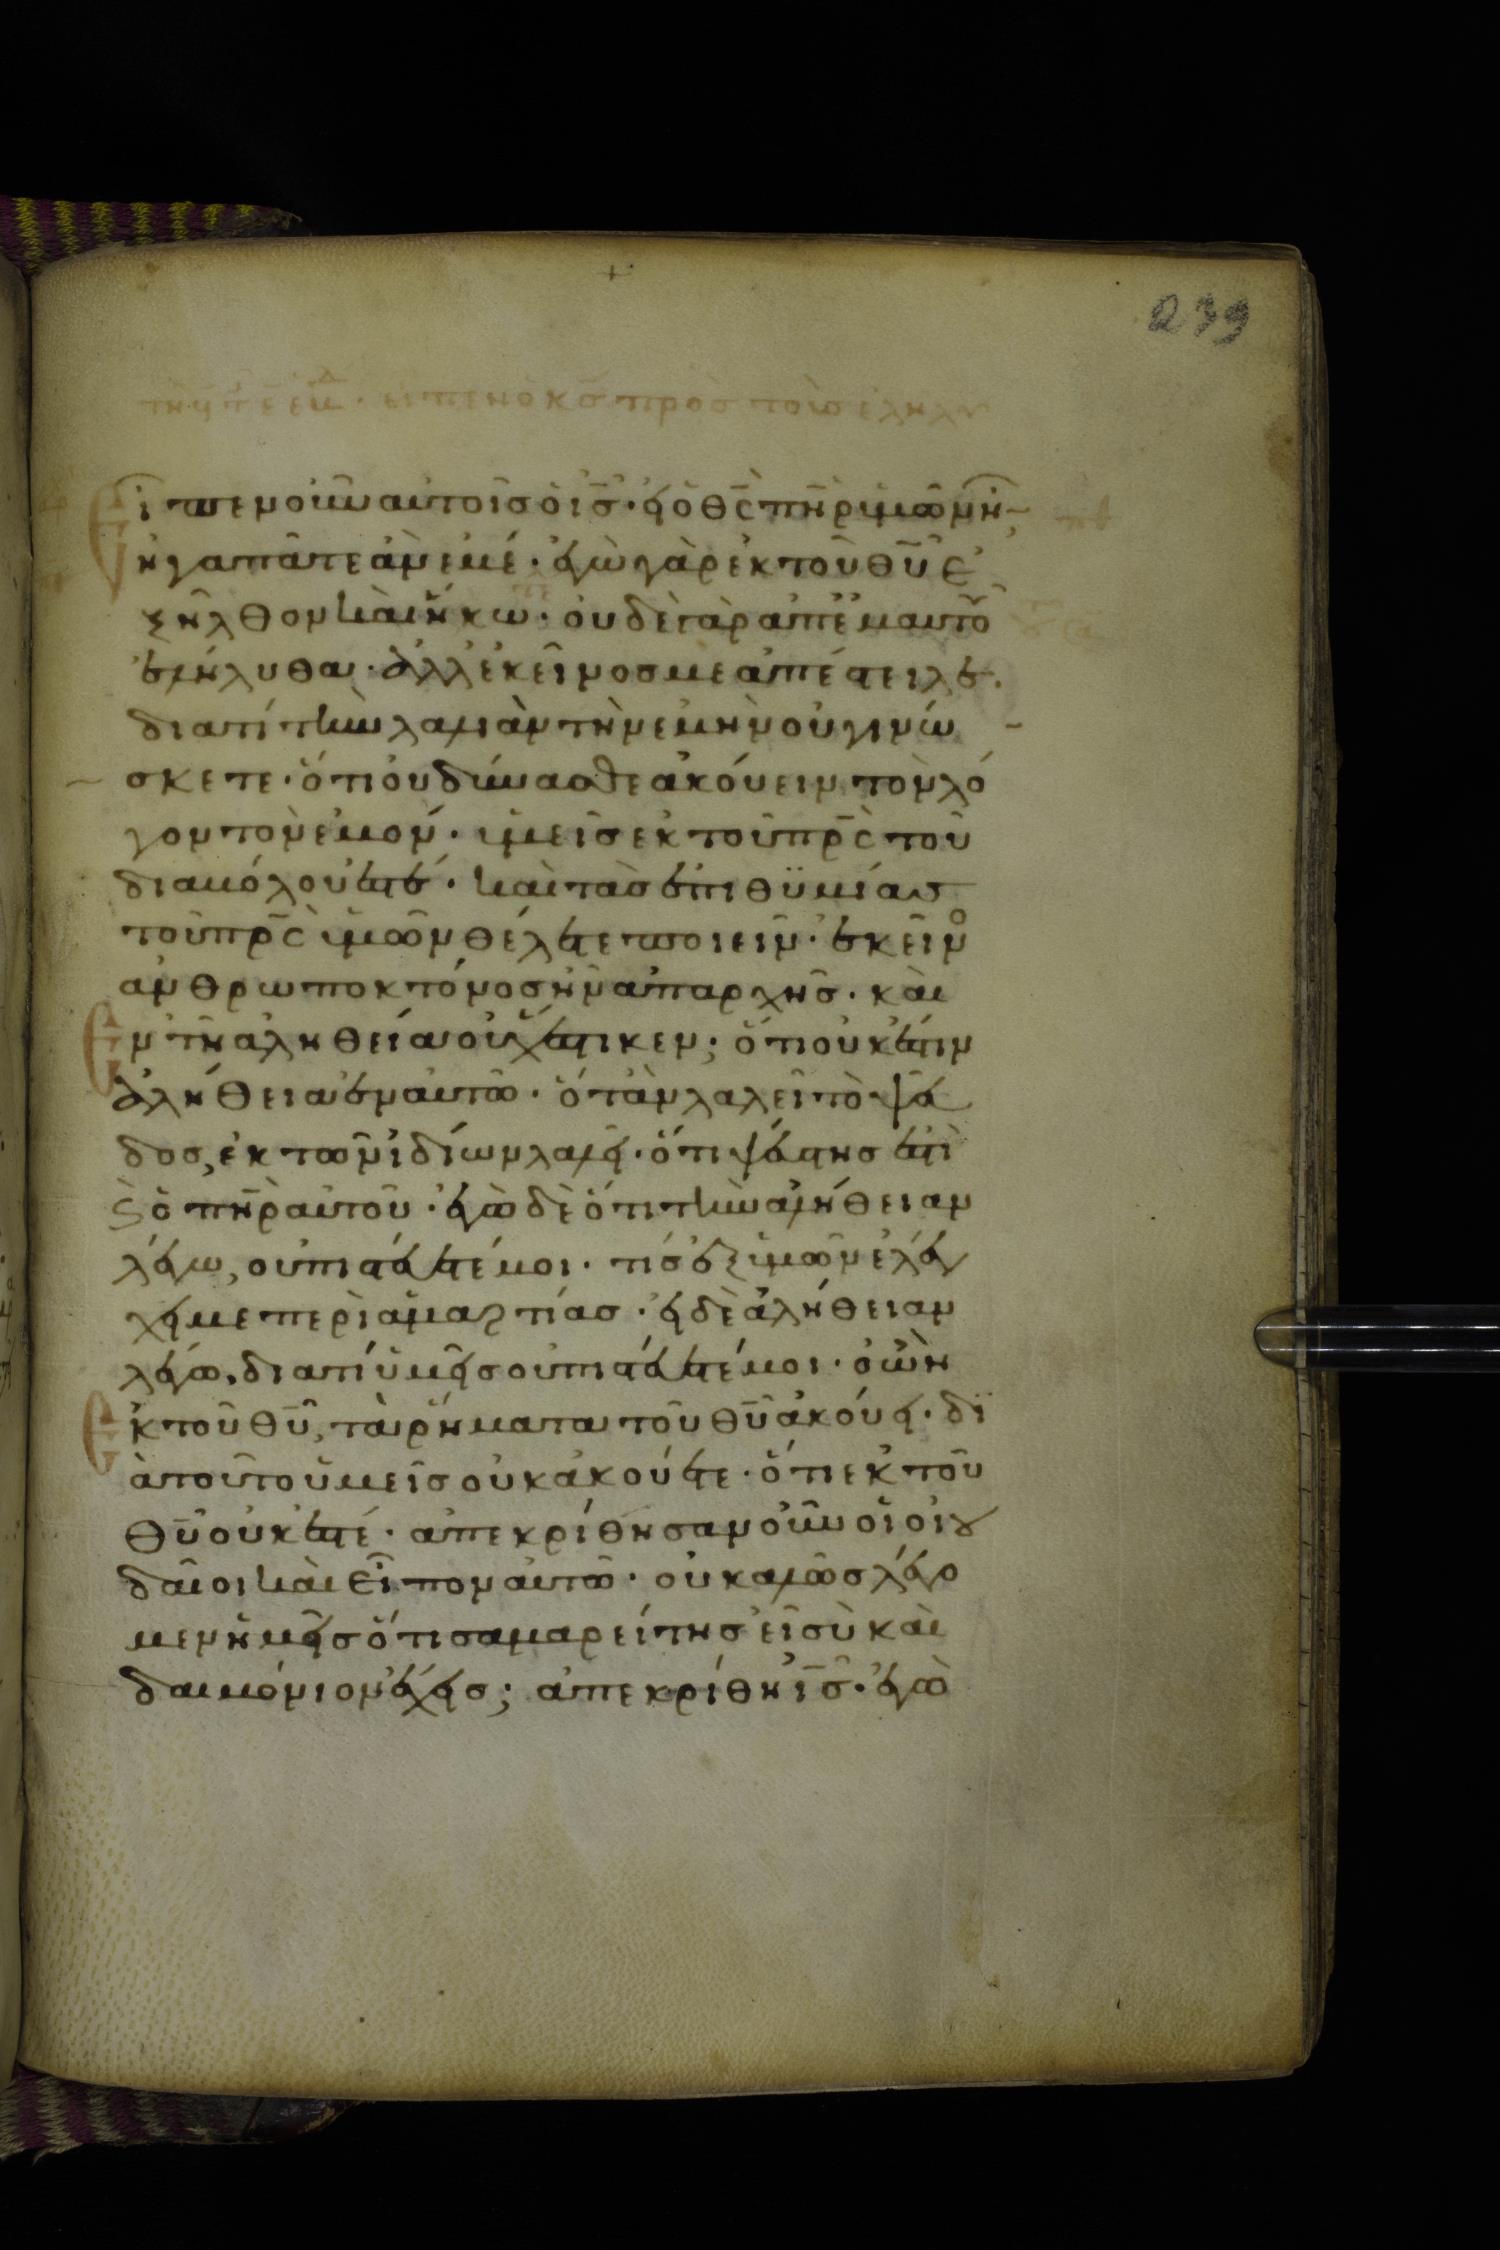 239
εἶπεν ὁ κ̅σ̅ πρὸσ τοὺσ ἐληλυ
Εἶπεν οὖν αὐτοῖσ ὁ ι̅σ̅· εἰ ὁ θ̅ς̅ π̅η̅ρ ὑμῶν ἦν·
ἠγαπᾶτε ἂν ἐμέ· ἐγὼ γὰρ ἐκ τοῦ θ̅υ̅ ἐ
ξῆλθον καὶ ἥκω· οὐδὲ γὰρ ἀπ' ἐμαυτοῦ
ἐλήλυθα· ἀλλ' ἐκεῖνοσ με ἀπέστειλε.
διατί τὴν λαλιὰν τὴν ἐμὴν οὐ γινώ
σκετε· ὅτι οὐ δύνασθε ἀκούειν τὸν λό
γον τὸν ἐμόν· ὑμεῖσ ἐκ τοῦ π̅ρ̅ς̅ τοῦ
διαβόλου ἐστέ· καὶ τὰσ ἐπιθϋμίασ
τοῦ π̅ρ̅ς̅ ὑμῶν θέλετε ποιεῖν· ἐκεῖνο
ἀνθρωποκτόνοσ ἦν ἀπαρχῆσ· καὶ
Εν τῆ ἀληθεία οὐχ ἕστηκεν· ὅτι οὐκ ἔστιν
ἀλήθεια ἐν αὐτῶ· ὅταν λαλεῖ τὸ ψεῦ
δοσ, ἐκ τῶν ἰδίων λαλεῖ· ὅτι ψεύστησ ἐστὶ
ϛ ὁ π̅η̅ρ αὐτοῦ· ἐγὼ δὲ ὅτι τὴν ἀλήθειαν
λέγω, οὐ πιστεύετέ μοι· τίσ ἐξ ὑμῶν ἐλέγ
χει με περὶ ἁμαρτίασ· εἰ δὲ ἀλήθειαν
λέγω, διατί ὑμεῖσ οὐ πιστεύετέ μοι· ὁ ὢν
Εκ τοῦ θ̅υ̅, τὰ ῥήματα τοῦ θ̅υ̅ ἀκούει· δι
ὰ τοῦτο ὑμεῖσ οὐκ ἀκούετε· ὅτι ἐκ τοῦ
θ̅υ̅ οὐκ ἐστέ· ἀπεκρίθησαν οὖν οἱ ἰου
δαῖοι καὶ εἶπον αὐτῶ· οὐ καλῶσ λέγο
μεν ἡμεῖσ ὅτι σαμαρείτησ εἶ σὺ καὶ
δαιμόνιον ἔχεισ; ἀπεκρίθη ι̅σ̅· ἐγὼ